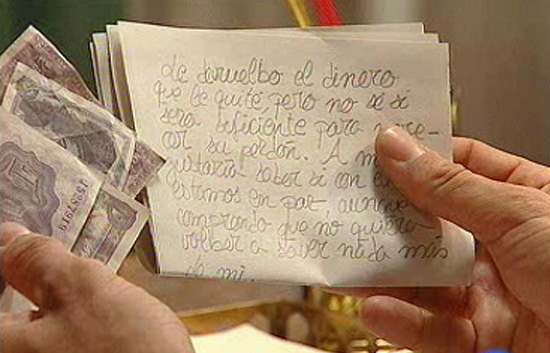 Le devuelbo el dinero
que le quité, pero no sé si
será suficiente para
cor su perdón. A m
gustaría saber si con e
estamos en paz, aunqu
comprendo que no quiera
volber a saver nada más
de mi.
1553919